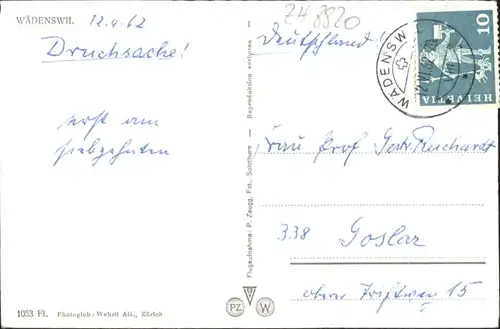 WÄDENSWIL 12.4.62
Z4 8820
Drucksache!
(Deutschland)
erst am
siebzehnten
WÄDENSW
HELVETIA
10
Frau Prof Gertr. Reichardt
338 Goslar
obere Triftweg 15
Flugaufnahme: P. Zaugg, Fot., Solothurn — Reproduktion verboten
PZ W
1053 Fl. Photoglob-Wehrli AG., Zürich